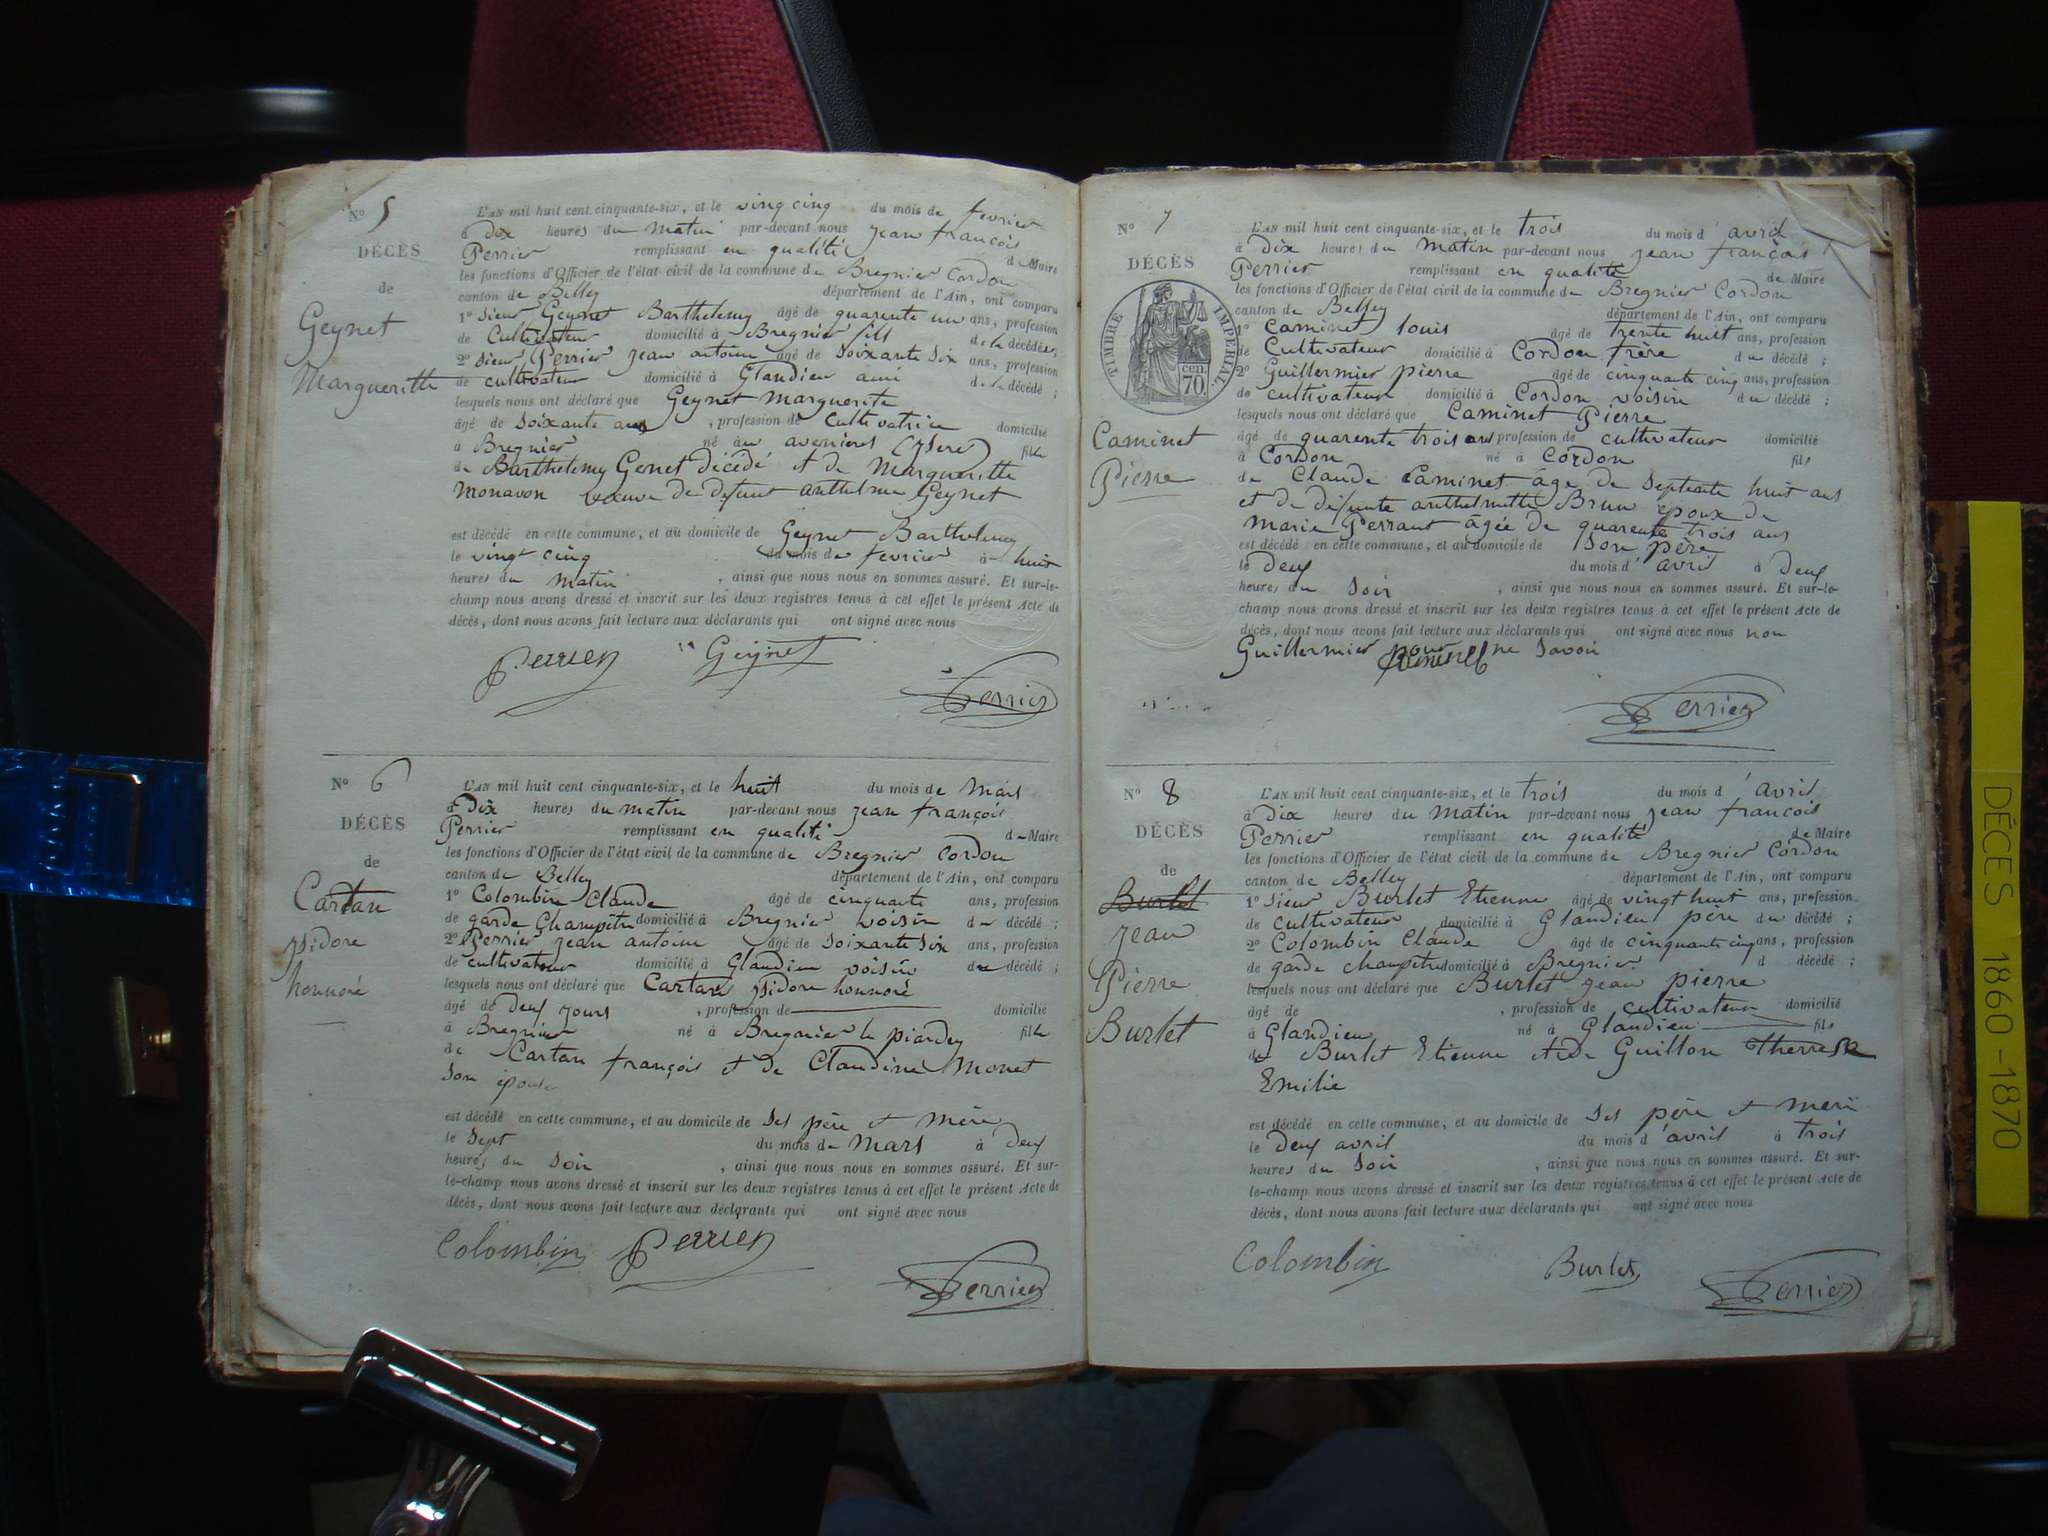 Nº 5
DÉCÈS
de
Geynet
Margueritte
L'AN mil huit cent cinquante-six, et le vingt cinq du mois de fevrier
à Dix heures du matin par-devant nous jean françois
Perrier remplissant en qualité de Maire
les fonctions d'Officier de l'état civil de la commune de Bregnier Cordon
canton de Belley département de l'Ain, ont comparu
1º sieur Geynet Barthelemy âgé de quarente un ans, profession
de Cultivateur domicilié à Bregnier fils de la décédée;
2º sieur Perrier jean antoine âgé de soixante six ans, profession
de cultivateur domicilié à Glandieu ami de la décédé;
lesquels nous ont déclaré que Geynet Marguerite
âgé de soixante ans, profession de Cultivatrice domicilié
à Bregnier né au avenieres (Isere) fille
de Barthelemy Genet décédé et de Margueritte
Monavon veuve de defunt anthelme Geynet
est décédé en cette commune, et au domicile de Geynet Barthelemy
le vingt cinq du mois de fevrier à huit
heures du matin, ainsi que nous nous en sommes assuré. Et sur-le-
champ nous avons dressé et inscrit sur les deux registres tenus à cet effet le présent Acte de
décès, dont nous avons fait lecture aux déclarants qui ont signé avec nous
Perrier Geynet
Perrier
Nº 6
DÉCÈS
de
Cartan
isidore
honnoré
L'AN mil huit cent cinquante-six, et le huit du mois de Mars
à Dix heures du matin par-devant nous jean françois
Perrier remplissant en qualité de Maire
les fonctions d'Officier de l'état civil de la commune de Bregnier Cordon
canton de Belley département de l'Ain, ont comparu
1º Colombin Claude âgé de cinquante ans, profession
de garde Champêtre domicilié à Bregnier voisin du décédé;
2º Perrier jean antoine âgé de soixante six ans, profession
de cultivateur domicilié à Glandieu voisin du décédé;
lesquels nous ont déclaré que Cartan isidore honnoré
âgé de deux jours, profession de domicilié
à Bregnier né à Bregnier le piardey fils
de Cartan françois et de Claudine Monet
son épouse
est décédé en cette commune, et au domicile de ses père et mère
le sept du mois de mars à deux
heures du soir, ainsi que nous nous en sommes assuré. Et sur-
le-champ nous avons dressé et inscrit sur les deux registres tenus à cet effet le présent Acte de
décès, dont nous avons fait lecture aux déclarants qui ont signé avec nous
Colombin Perrier
Perrier
Nº 7
DÉCÈS
TIMBRE IMPERIAL.
cen.
70.
Caminet
Pierre
L'AN mil huit cent cinquante-six, et le trois du mois d'avril
à Dix heures du matin par-devant nous jean françois
Perrier remplissant en qualité de Maire
les fonctions d'Officier de l'état civil de la commune de Bregnier Cordon
canton de Belley département de l'Ain, ont comparu
1º Caminet louis âgé de trente huit ans, profession
de Cultivateur domicilié à Cordon frère du décédé;
2º Guillermier pierre âgé de cinquante cinq ans, profession
de cultivateur domicilié à Cordon voisin du décédé;
lesquels nous ont déclaré que Caminet Pierre
âgé de quarente trois ans profession de cultivateur domicilié
à Cordon né à Cordon fils
de Claude Caminet âge de septente huit ans
et de défunte anthelmette Brun epoux de
Marie Perraut âgée de quarente trois ans
est décédé en cette commune, et au domicile de son père
le deux du mois d'avril à deux
heures du soir, ainsi que nous nous en sommes assuré. Et sur-le-
champ nous avons dressé et inscrit sur les deux registres tenus à cet effet le présent Acte de
décès, dont nous avons fait lecture aux déclarants qui ont signé avec nous non
Guillermier pour ne savoir
Perrier
Nº 8
DÉCÈS
de
Burlet
jean
Pierre
Burlet
L'AN mil huit cent cinquante-six, et le trois du mois d'avril
à dix heures du matin par-devant nous jean francois
Perrier remplissant en qualité de Maire
les fonctions d'Officier de l'état civil de la commune de Bregnier Cordon
canton de Belley département de l'Ain, ont comparu
1º sieur Burlet Etienne âgé de vingt huit ans, profession
de cultivateur domicilié à Glandieu père du décédé;
2º Colombin Claude âgé de cinquante cinq ans, profession
de garde champêtre domicilié à Bregnier d décédé;
lesquels nous ont déclaré que Burlet jean pierre
âgé de , profession de cultivateur domicilié
à Glandieu né à Glandieu fils
de Burlet Etienne et de Guillon therrese
Emilie
est décédé en cette commune, et au domicile de ses père et mere
le deux avril du mois d'avril à trois
heures du soir, ainsi que nous nous en sommes assuré. Et sur-
le-champ nous avons dressé et inscrit sur les deux registres tenus à cet effet le présent Acte de
décès, dont nous avons fait lecture aux déclarants qui ont signé avec nous
Colombin Burlet Perrier
DÉCES 1860-1870